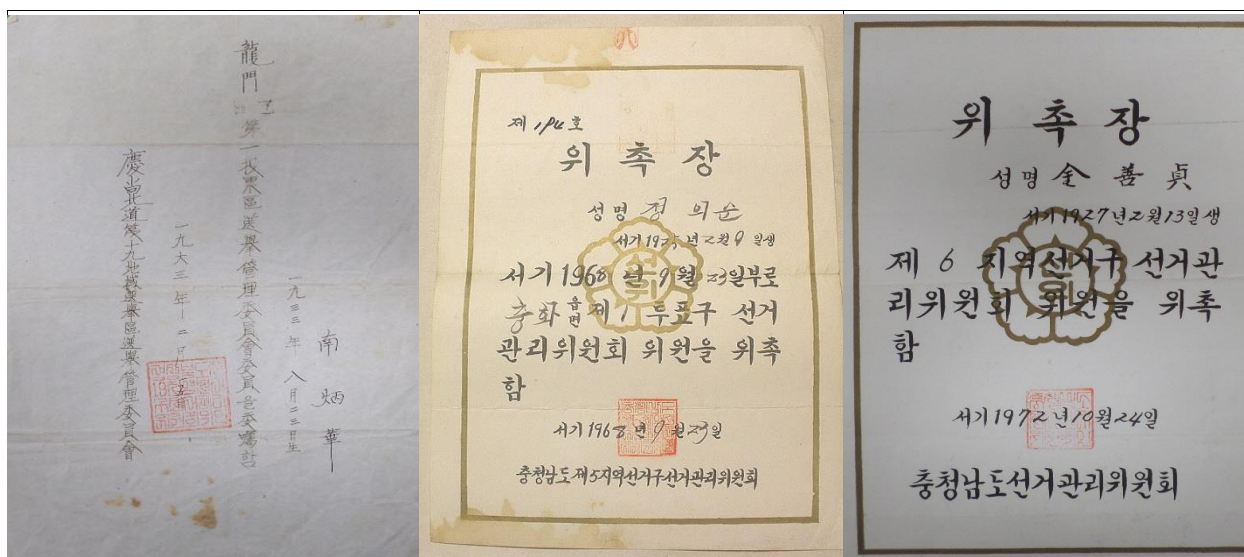 南炳華
一九三三年 八月二三日生
龍門 第一投票區選擧管理委員會委員을委囑함
一九六三年
慶尙北道第十九地域選擧區選擧管理委員會
제 194 호
위 촉 장
성명 정 의 순
서기 192 년 2월 9 일생
서기 1968 년 9월 23일부로
충화 읍면 제 1 투표구 선거
관리위원회 위원을 위촉
함
서기 1968 년 9 월 23 일
충청남도 제5지역선거구선거관리위원회
위 촉 장
성명 金 善 貞
서기 1927년 2월 13일생
제 6 지역선거구 선거관
리위원회 위원을 위촉
함
서기 1972년 10월 24일
충청남도선거관리위원회